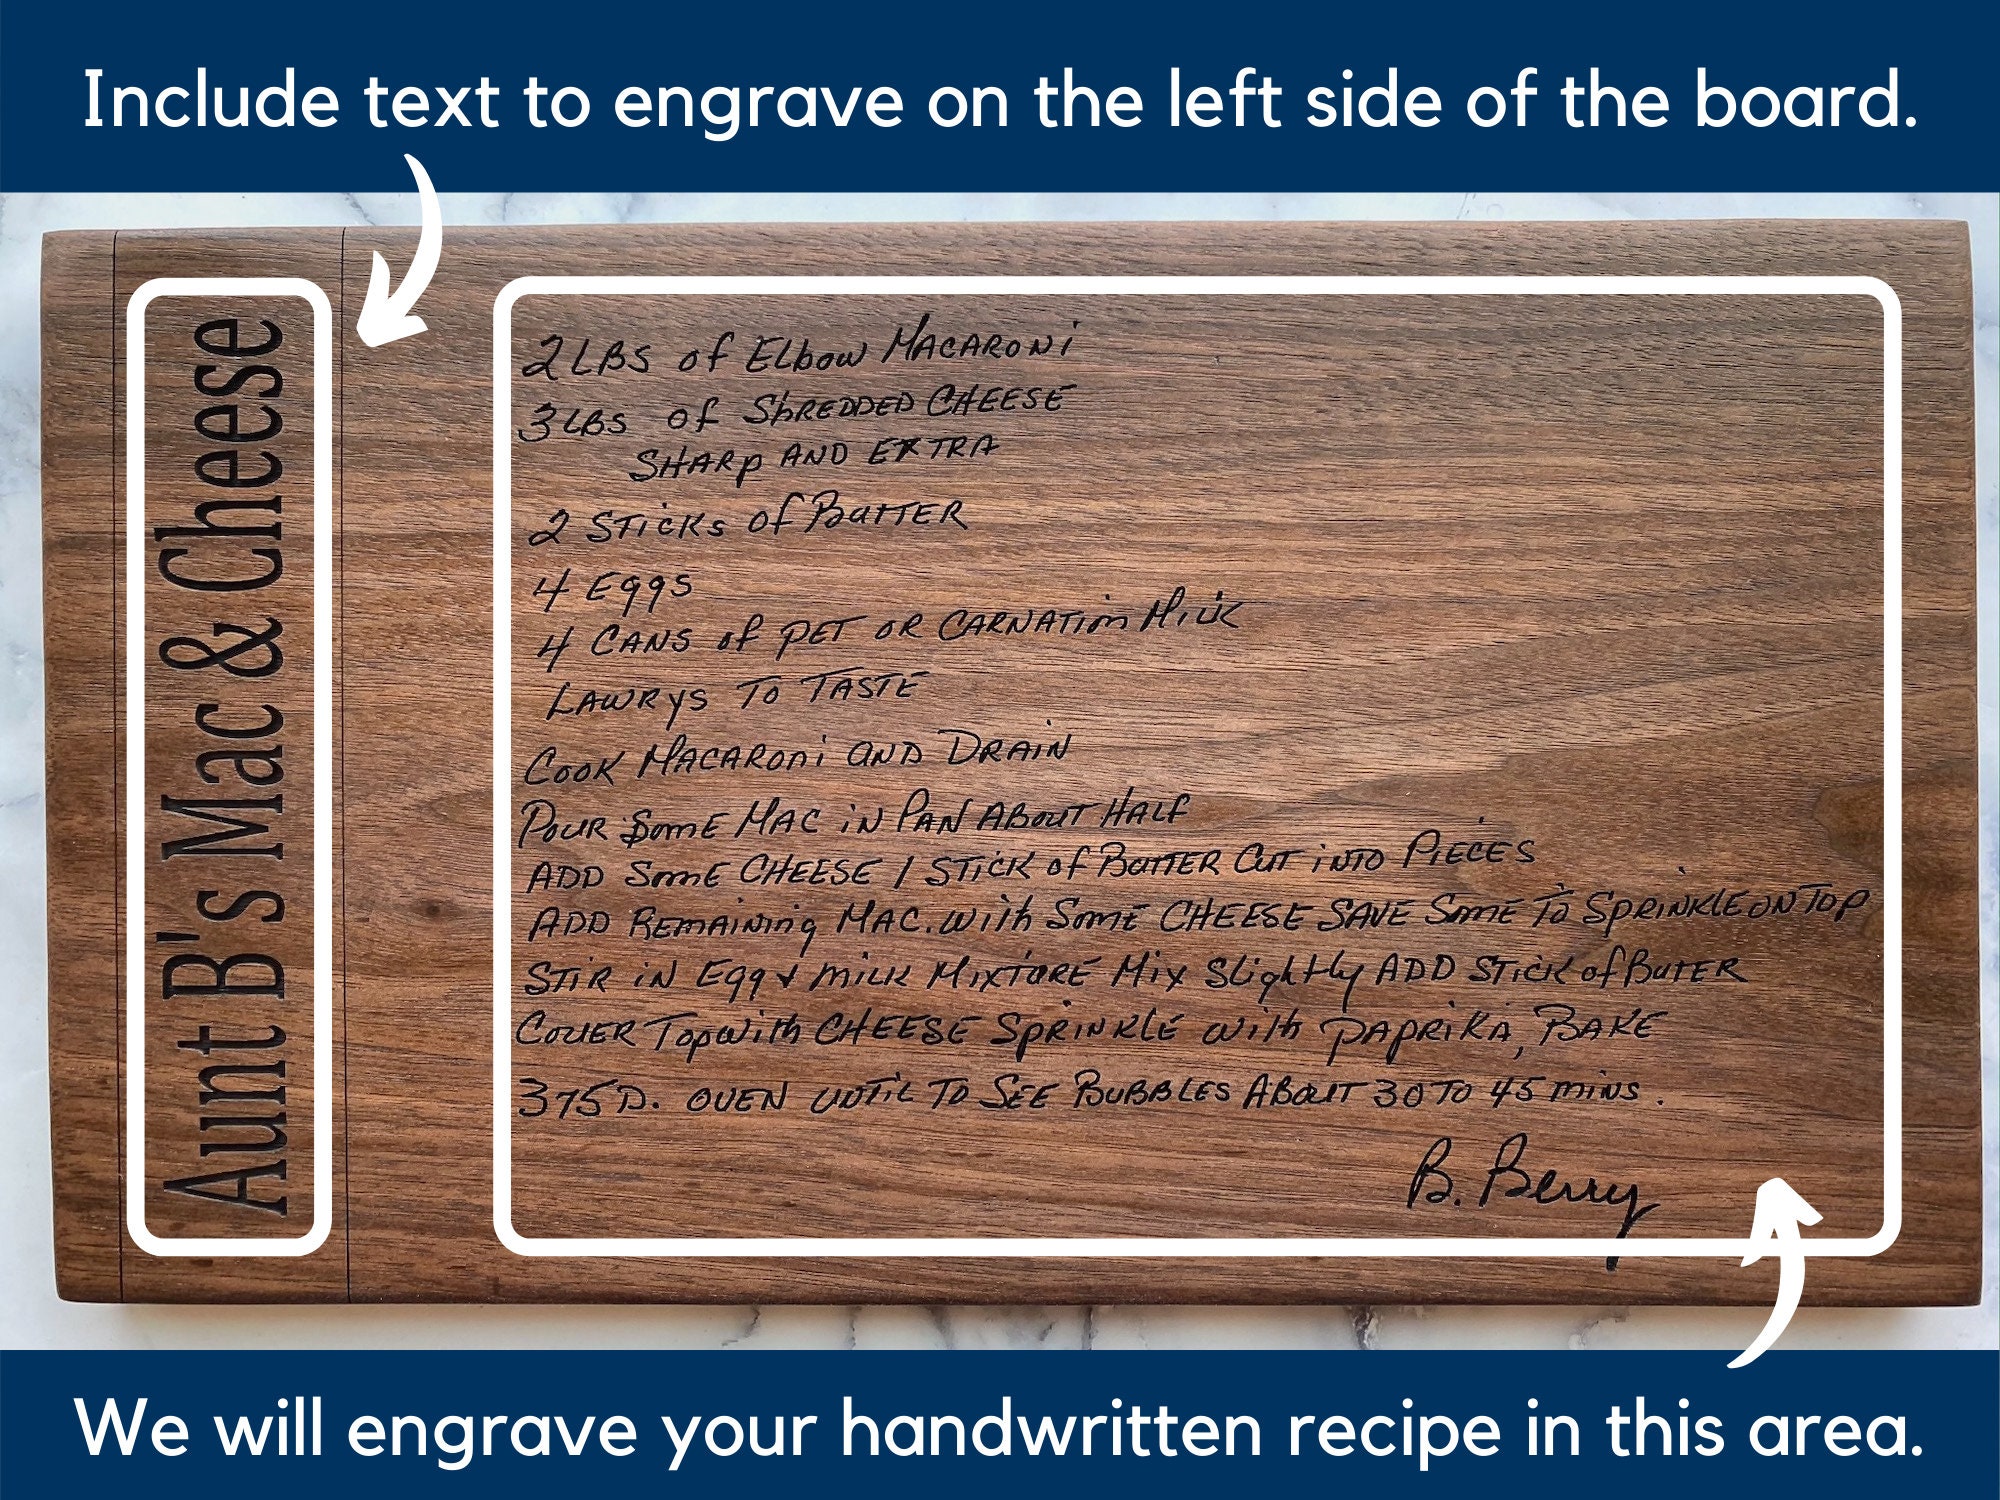 Include text to engrave on the left side of the board.
Aunt B's Mac & Cheese
2 LBS of Elbow MACARONi
3 LBS of ShREDDED CHEESE
SHARP AND EXTRA
2 STicKs of BuTTER
4 Eggs
4 CANS of PET OR CARNATion Milk
LAWRYS To TASTE
Cook MACARONi AND DRAIN
PouR SomE MAC iN PAN ABouT HALF
ADD SomE CHEESE 1 STICK of BuTTER CuT iNTO PiECES
ADD REmAiNiNg MAC. with SomE CHEESE SAVE SomE To SPRiNKlE oN Top
STiR iN Egg & milK MixTuRE Mix Slightly ADD STicK of BuTER
CovER Top with CHEESE SpRiNKlE with PAPRiKA, BAKE
375 D. OVEN uNTil To SEE BuBBLES ABouT 30 To 45 miNS.
B. Berry
We will engrave your handwritten recipe in this area.